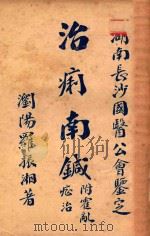 湖南長沙國醫公會鑒定
治痢南鍼
附霍亂
痧治
瀏陽羅振湘著